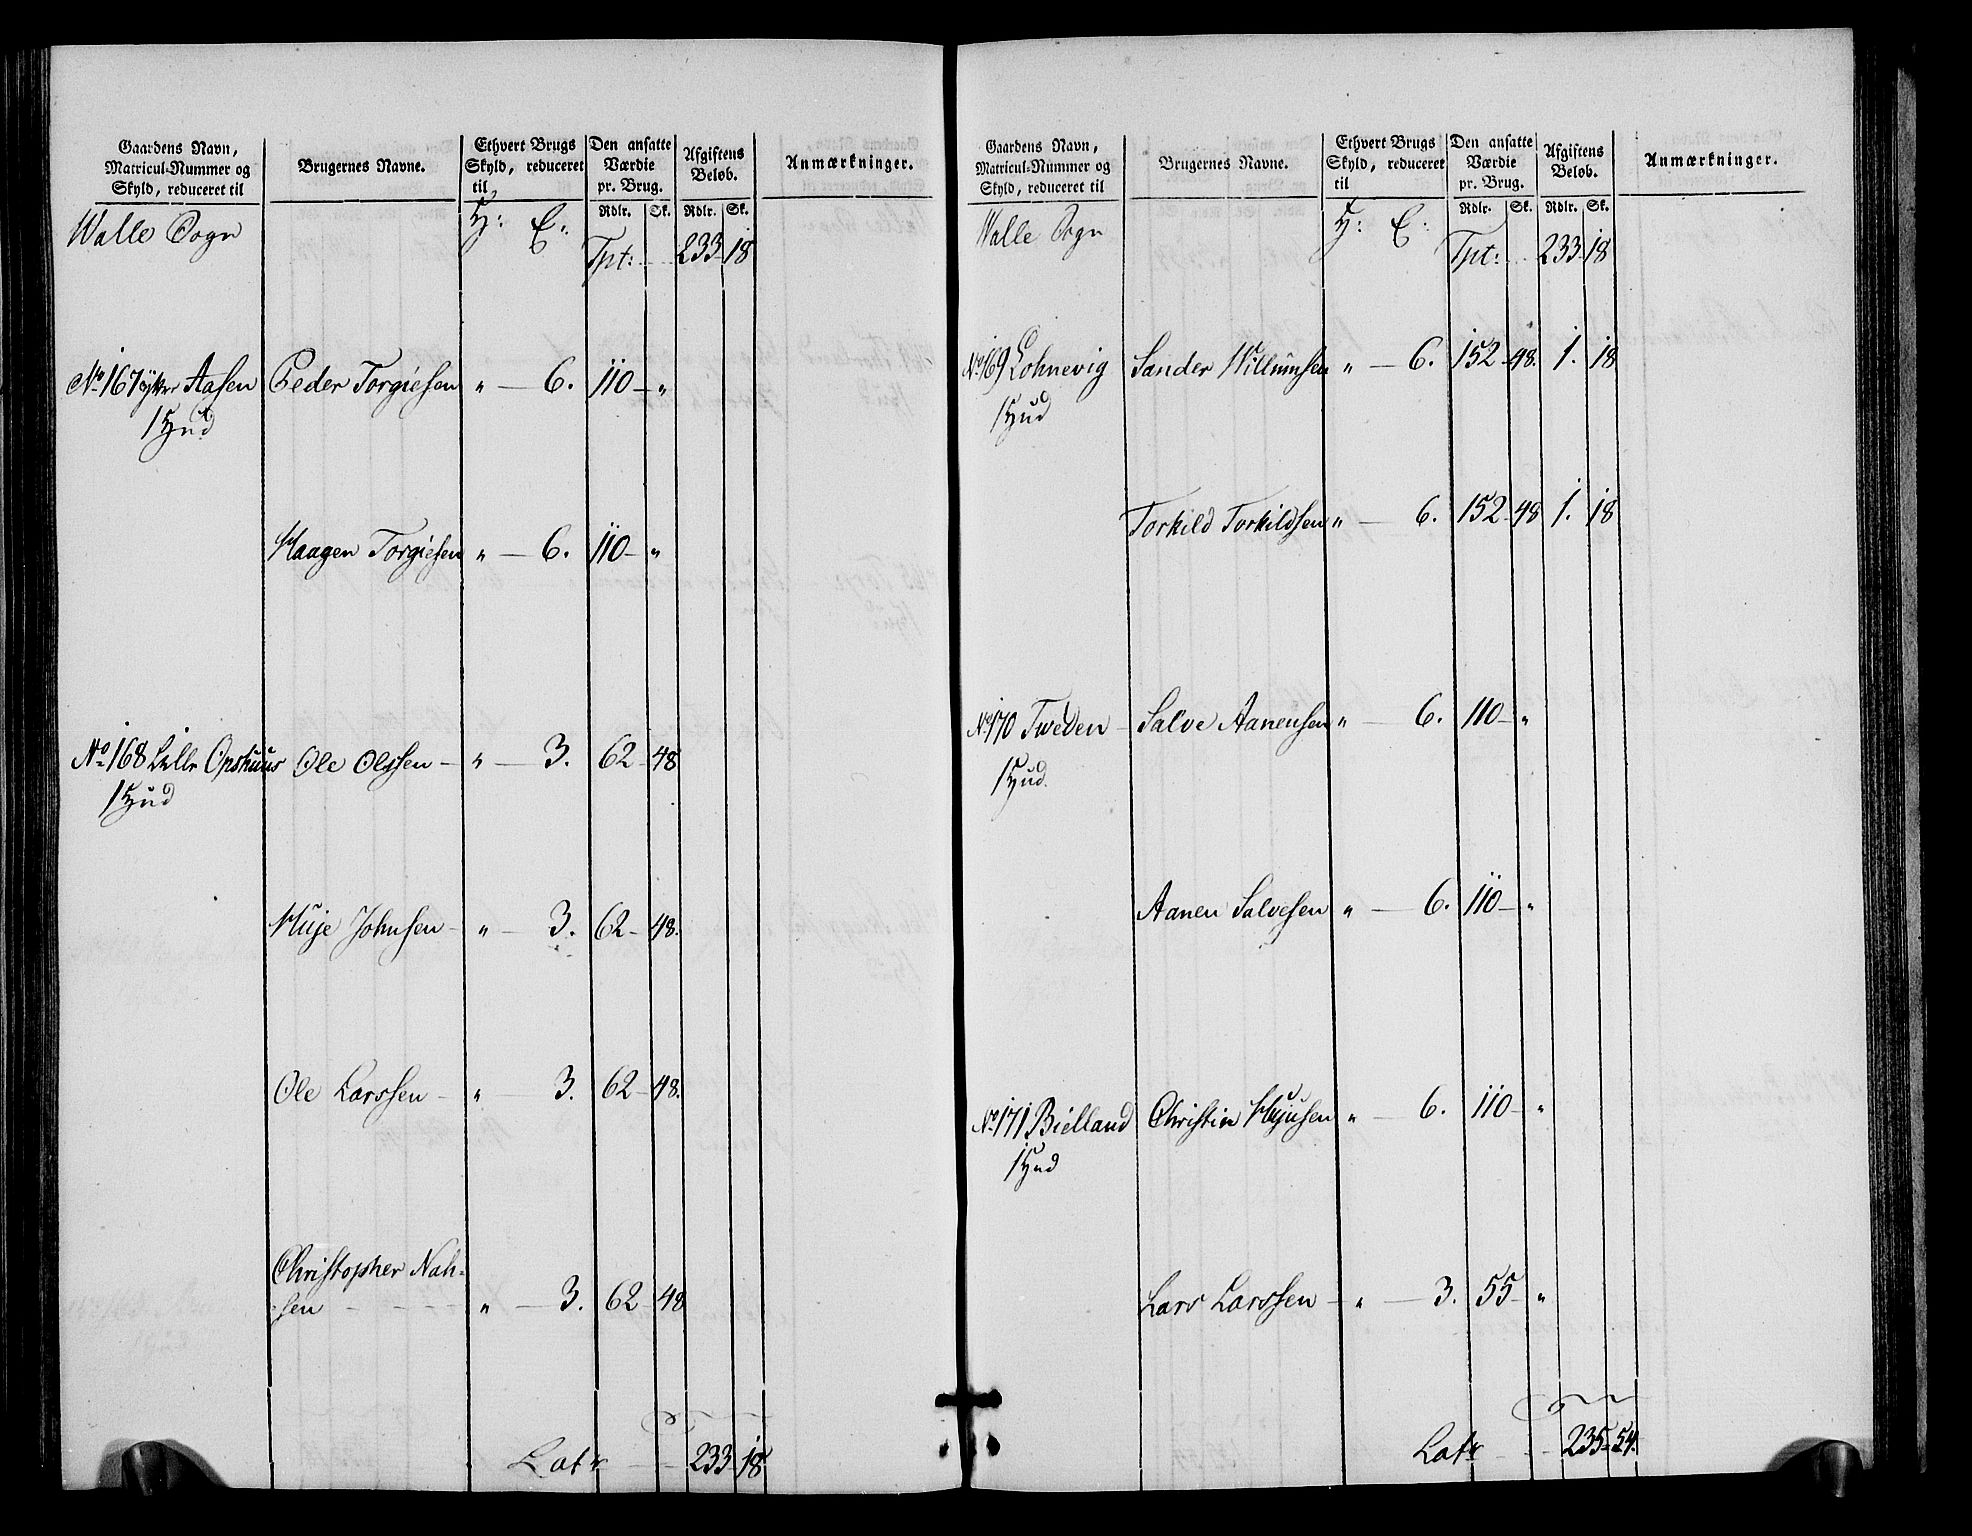 Gaardens Navn,
Matricul-Nummer og
Skyld, reduceret til
Brugernes Navne.
Ethvert Brugs
Skyld, reduceret
til
Den ansatte
Værdie
pr. Brug.
Afgiftens
Beløb.
Anmærkninger.
Rdlr. Sk. Rdlr. Sk.
Walle Sogn H: E:
Tpt: 233 18
No 167 ytter Aasen Peder Torgiesen " — 6. 110 — "
1 Hud
Haagen Torgiesen " — 6. 110 — "
No 168 Lille Opshuus Ole Olssen — " — 3. 62 — 48
1 Hud
Huje Johnsen — " — 3. 62 — 48.
Ole Larssen — " 3. 62 — 48.
Christopher Nah-
sen — " — 3. 62 — 48
Latr 233 18
Gaardens Navn,
Matricul-Nummer og
Skyld, reduceret til
Brugernes Navne.
Ethvert Brugs
Skyld, reduceret
til
Den ansatte
Værdie
pr. Brug.
Afgiftens
Beløb.
Anmærkninger.
Rdlr. Sk. Rdlr. Sk.
Walle Sogn H: E:
Tpt: 233 18
No 169 Lohnevig Sander Willumsen " — 6. 152 — 48. 1. 18
1 Hud
Torkild Torkildsen " — 6. 152 — 48 1. 18
No 170 Tweden — Salve Aanensen " — 6. 110 — "
1 Hud.
Aanen Salvesen " — 6. 110 — "
No 171 Bielland Christin Hujusen " — 6. 110 — "
1 Hud
Lars Larssen — " — 3. 55 — "
Latr 235 — 54.